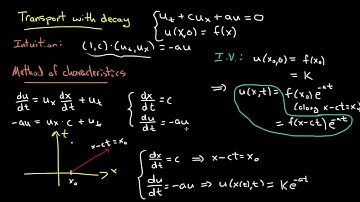 Transport with decay
{ u_t + cu_x + au = 0
u(x,0) = f(x)
Intuition: (1,c)·(u_t,u_x) = -au
Method of characteristics
du/dt = u_x dx/dt + u_t
-au = u_x · c + u_t
{ dx/dt = c
du/dt = -au
t
x-ct=x₀
x₀
x
{ dx/dt = c ⇒ x-ct = x₀
du/dt = -au ⇒ u(x(t),t) = Ke^{-at}
I.V.: u(x₀,0) = f(x₀)
= K
⇒ u(x,t) = f(x₀)e^{-at}
(along x-ct=x₀)
= f(x-ct)e^{-at}